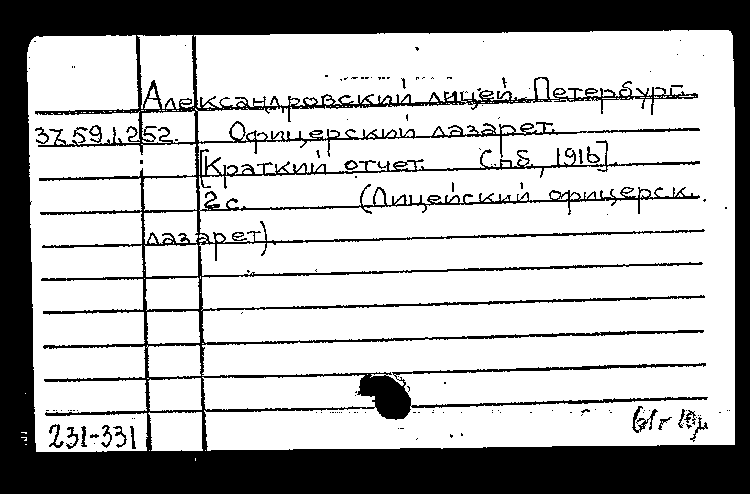 Александровский лицей. Петербург.
37.59.1.252. Офицерский лазарет.
[Краткий отчет. Спб, 1916].
2 с. (Лицейский офицерск.
лазарет).
231-331